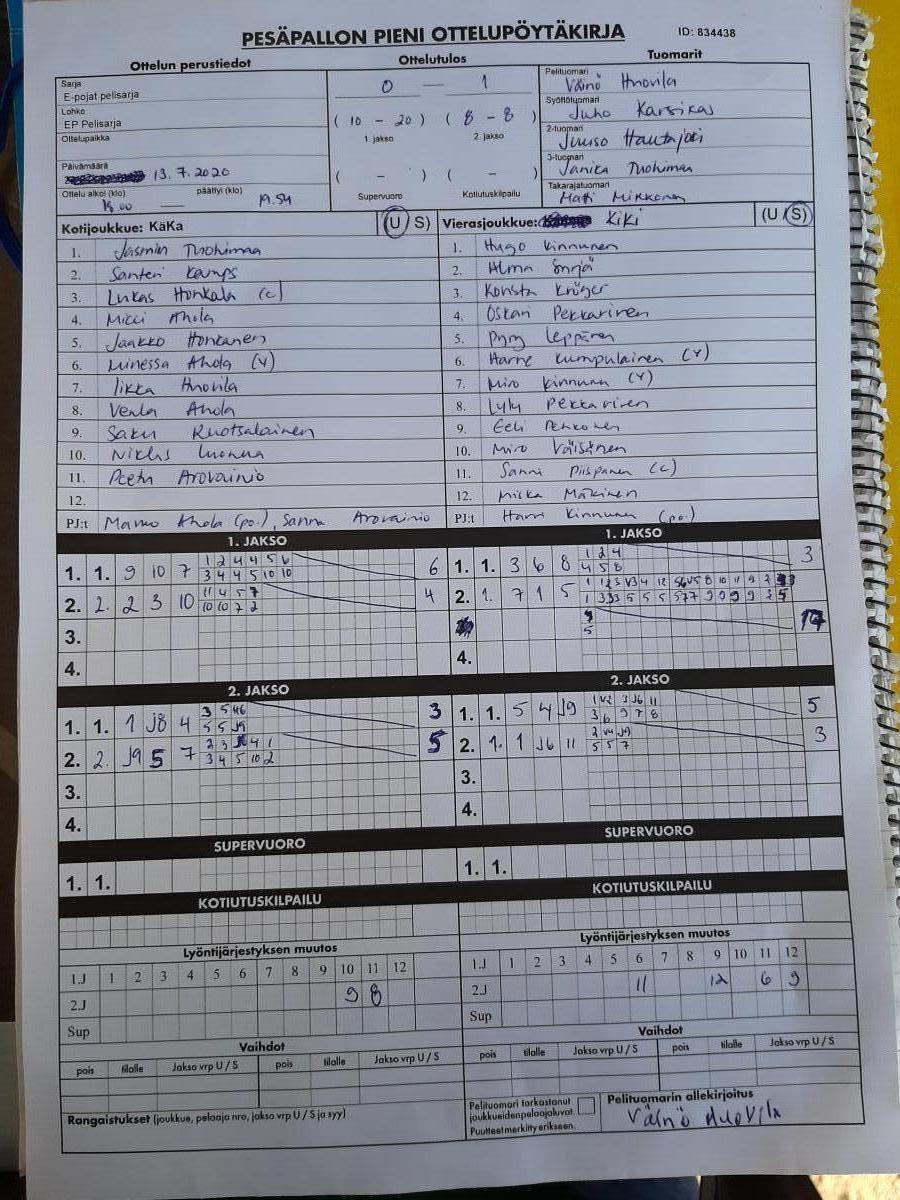 PESÄPALLON PIENI OTTELUPÖYTÄKIRJA
ID: 834438
Ottelun perustiedot
Ottelutulos
Tuomarit
Sarja
E-pojat pelisarja
Lohko
EP Pelisarja
Ottelupaikka
Päivämäärä
13.7.2020
Ottelu alkoi (klo) päättyi (klo)
18.00 — 19.54
0 — 1
(10 - 20) (8 - 8)
1. jakso 2. jakso
( - ) ( - )
Supervuoro Kotiutuskilpailu
Pelituomari
Väinö Huovila
Syöttötuomari
Juho Karsikas
2-tuomari
Juuso Hautajoki
3-tuomari
Janika Tuohimaa
Takarajatuomari
Matti Mikkonen
Kotijoukkue: KäKa (U S)
1. Jasmin Tuohimaa
2. Santeri Kamps
3. Lukas Honkala (c)
4. Micci Ahola
5. Jaakko Honkanen
6. Minessa Ahola (V)
7. Iikka Huovila
8. Venla Ahola
9. Saku Ruotsalainen
10. Niklas
11. Peetu Arovainio
12.
PJ:t Marko Ahola (po.), Sanna Arovainio
Vierasjoukkue: KiKi (U S)
1. Hugo Kinnunen
2. Alma
3. Konsta Krüger
4. Oskari Pekkarinen
5. Pyry Leppänen
6. Harne Kumpulainen (V)
7. Miro Kinnunen (V)
8. Lylu Pekkarinen
9. Eeli Penkonen
10. Miro Väisänen
11. Sanni Piispanen (c)
12. Miska Mäkinen
PJ:t Harri Kinnunen (po.)
1. JAKSO
1. 1. 9 10 7 1 2 4 4 5 6 6
3 4 4 5 10 10
2. 2. 2 3 10 11 4 5 7 4
10 10 7 2
3.
4.
1. JAKSO
1. 1. 3 6 8 1 2 4 3
4 5 8
2. 1. 7 1 5
5
17
4.
2. JAKSO
1. 1. 1 J8 4 3 5 6 3
5 5 J9
2. 2. J9 5 7 2 3 4 1 5
3 4 5 10 2
3.
4.
2. JAKSO
1. 1. 5 4 J9 1 V2 3 J6 11 5
3 6 9 7 8
2. 1. 1 J6 11 2 V4 J9 3
5 5 7
3.
4.
SUPERVUORO
1. 1.
SUPERVUORO
1. 1.
KOTIUTUSKILPAILU
KOTIUTUSKILPAILU
Lyöntijärjestyksen muutos
1.J 1 2 3 4 5 6 7 8 9 10 11 12
2.J 9 8
Sup
Lyöntijärjestyksen muutos
1.J 1 2 3 4 5 6 7 8 9 10 11 12
2.J 11 12 6 9
Sup
Vaihdot
pois tilalle Jakso vrp U / S pois tilalle Jakso vrp U / S
Vaihdot
pois tilalle Jakso vrp U / S pois tilalle Jakso vrp U / S
Rangaistukset (joukkue, pelaaja nro, jakso vrp U / S ja syy)
Pelituomari tarkastanut
joukkueidenpelaajaluvat.
Puutteet merkitty erikseen.
Pelituomarin allekirjoitus
Väinö Huovila